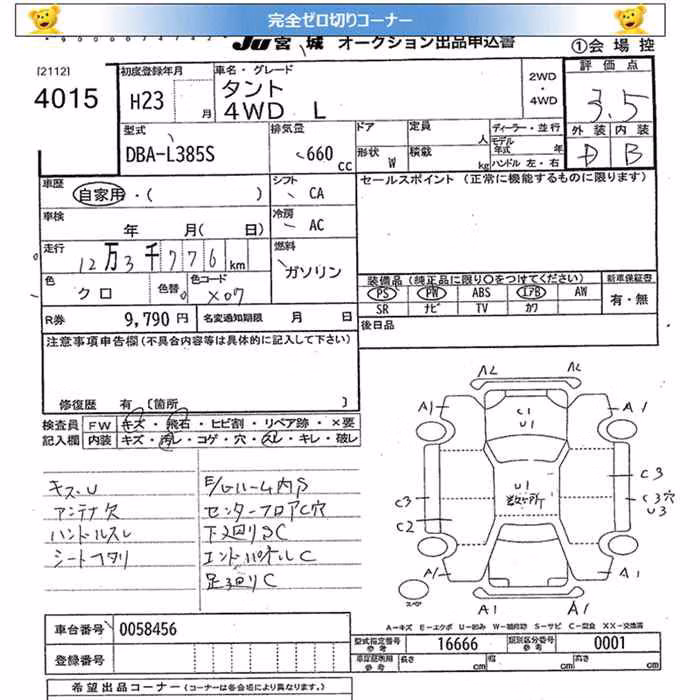 完全ゼロ切りコーナー
JU宮城 オークション出品申込書 ①会場控
[2112]
4015
初度登録年月 H23 月
車名・グレード タント 4WD L
2WD・4WD
評価点 3.5
外装 内装
D B
型式 DBA-L385S
排気量 660 cc
ドア 定員 人
形状 W 積載 kg
ディーラー・並行
モデル年式 年
ハンドル 左・右
車歴 自家用・( )
シフト CA
セールスポイント (正常に機能するものに限ります)
車検 年 月( 日)
冷房 AC
走行 12万3千776 km
燃料 ガソリン
色 クロ 色替 色コード X07
装備品 (純正品に限り○をつけてください) 新車保証書
PS PW ABS エアB AW 有・無
SR ナビ TV カワ
R券 9,790円 名変通知期限 月 日
後日品
注意事項申告欄(不具合内容等は具体的に記入して下さい)
修復歴 有 [箇所 ]
検査員 FW キズ・飛石・ヒビ割・リペア跡・×要
記入欄 内装 キズ・汚レ・コゲ・穴・スレ・キレ・破レ
キズ・U
アンテナ欠
ハンドルスレ
シートヘタリ
E/Gルーム内S
センターフロアC穴
下廻りSC
エンドパネルC
足廻りC
A2 A2
A1 A1
C1
U1
C3
U1
C3 C3穴
U3
C2
A1 A1
スペア
A1 A1
A−キズ E−エクボ U−凹み W−補修跡 S−サビ C−腐食 XX−交換済
車台番号 0058456
型式指定番号 参考 16666 類別区分番号 参考 0001
登録番号
車庫証明用 参考 長さ cm 幅 cm 高さ cm
希望出品コーナー (コーナーは各会場により異なります。)